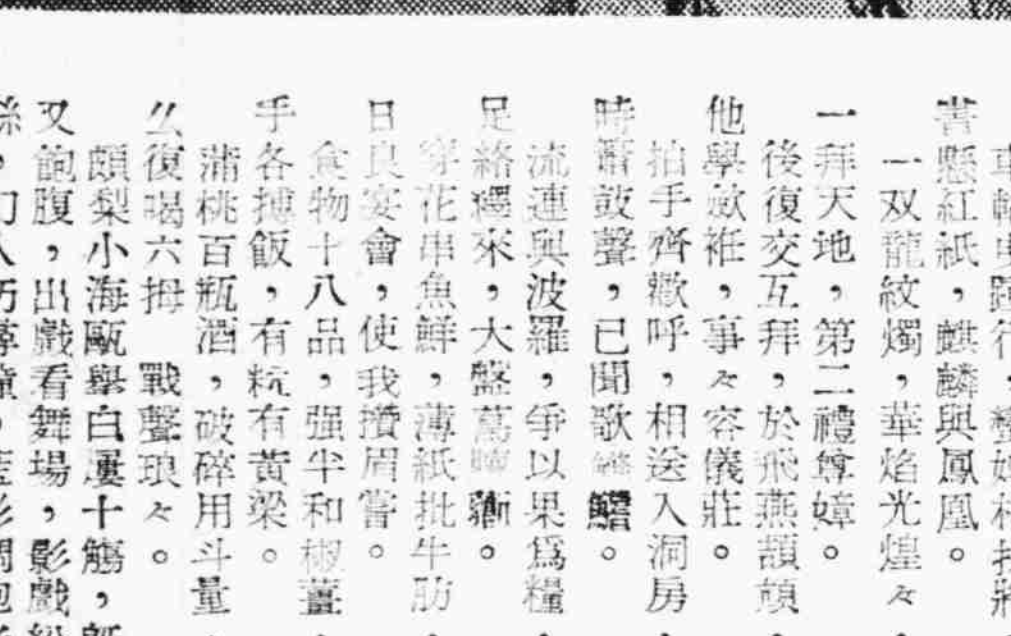 車輪曳踵行,蠻奴相扶將
書懸紅紙,麒麟與鳳凰。
一双龍紋燭,華焰光煌々,
一拜天地,第二禮尊嫜。
後復交互拜,於飛燕頡頏,
他學歛衽,事々容儀莊。
拍手齊歡呼,相送入洞房,
時鼓聲,已聞歌。
流連與波羅,争以果爲糧,
足絡繹來,大盤萬。
穿花串魚鮮,薄紙批牛肪,
日良宴會,使我攢眉嘗。
食物十八品,强半和椒薑,
手各搏飯,有粇有黃梁。
蒲桃百瓶酒,破碎用斗量,
么復喝六拇 戰聲琅々。
頗梨小海甌舉白屢十觴,
又飽腹,出戲看舞場,影戲